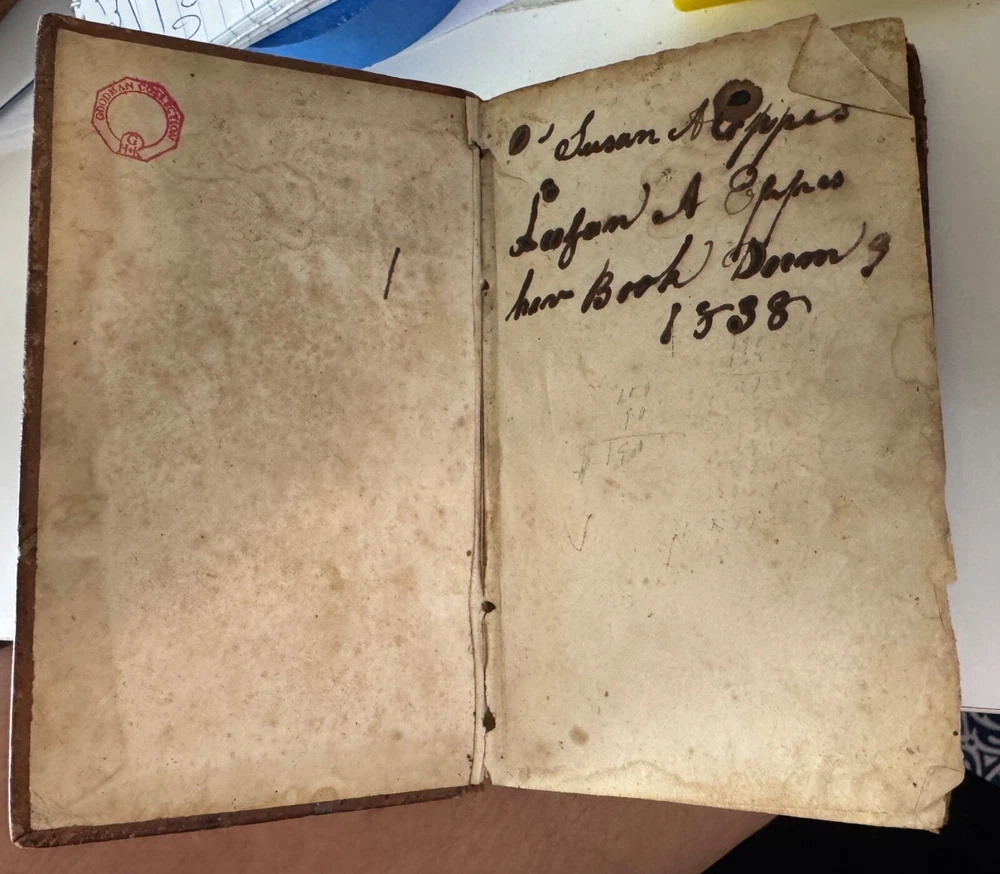 GOODMAN COLLECTION
G
H•K
Susan A Eppes
Susan A Eppes
her Book
1838